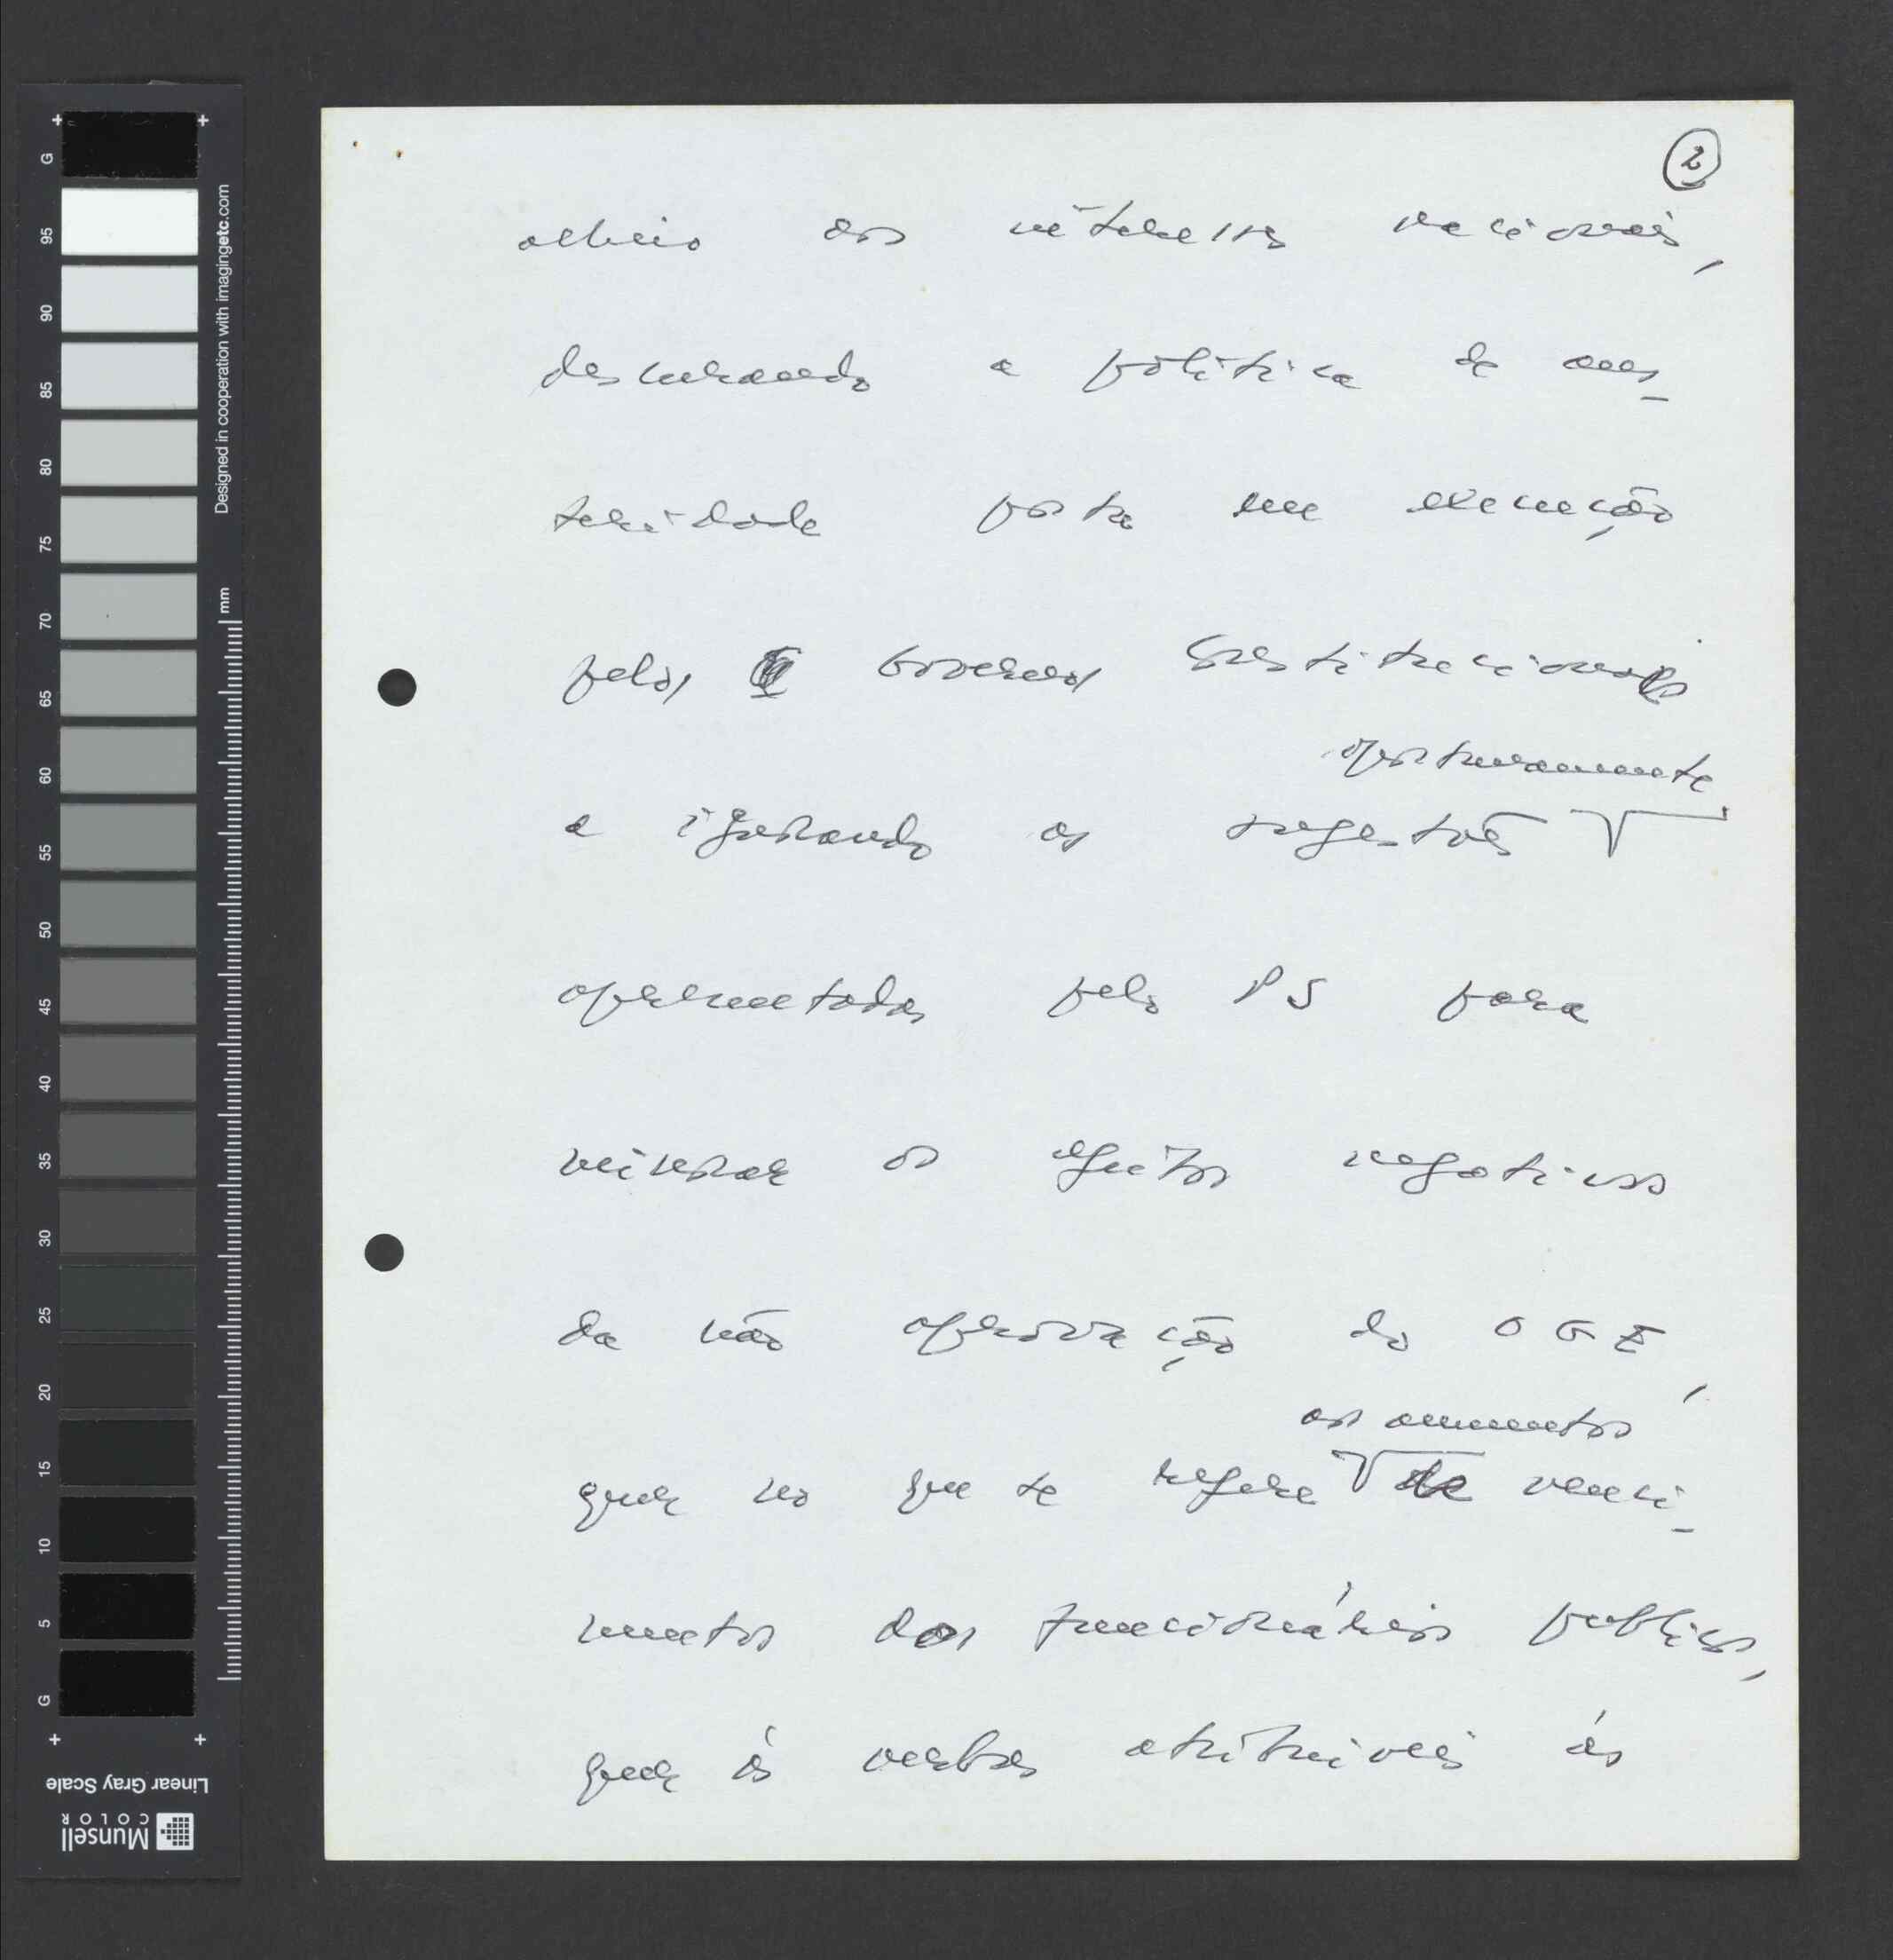 2
alheio aos interesses nacionais,
descurando a política de aus-
teridade posta em execução
pelos Governos Constitucionais
oportunamente
e ignorando as sugestões
apresentadas pelo PS para
minorar os efeitos negativos
da não aprovação do OGE,
aos aumentos
quer no que se refere de venci-
mentos dos funcionários publicos,
quer às verbas atribuiveis às
G
95
90
85
80
75
70
65
60
55
50
45
40
35
30
25
20
15
10
5
G
Designed in cooperation with imagingetc.com
mm
Linear Gray Scale
Munsell
COLOR